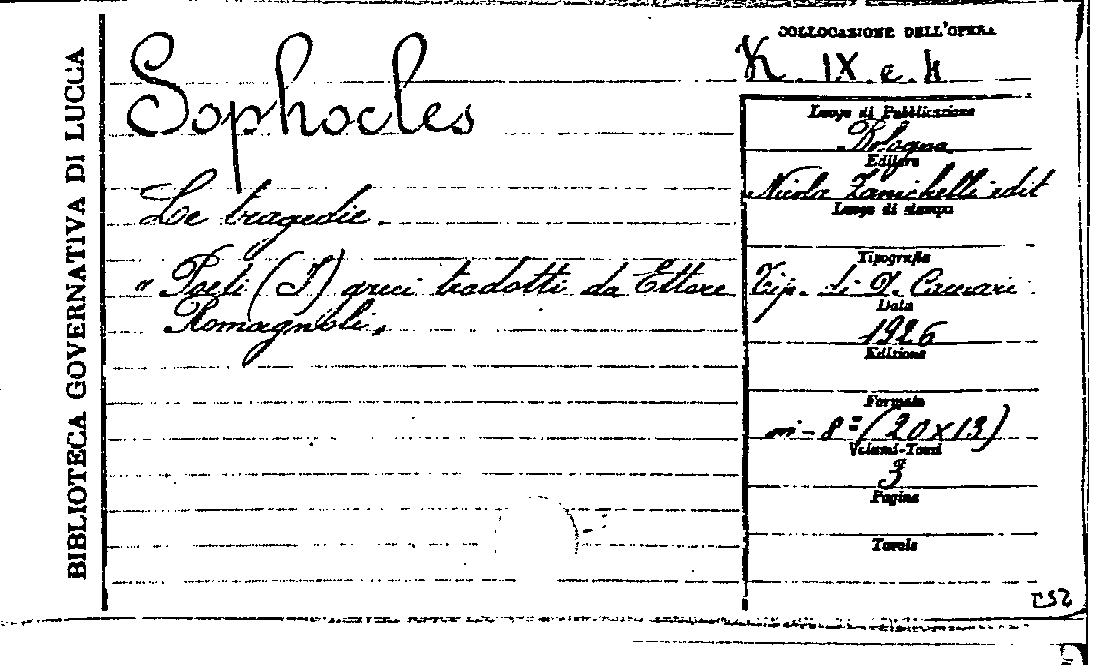 BIBLIOTECA GOVERNATIVA DI LUCCA
Sophocles
Le tragedie.
" Poeti (I) greci tradotti da Ettore
Romagnoli.
COLLOCAZIONE DELL'OPERA
K. IX. e. 4
Luogo di Pubblicazione
Bologna
Editore
Nicola Zanichelli edit
Luogo di stampa
Tipografia
Tip. di
Data
1926
Edizione
Formato
in-8º (20x13)
Volumi-Tomi
3
Pagine
Tavole